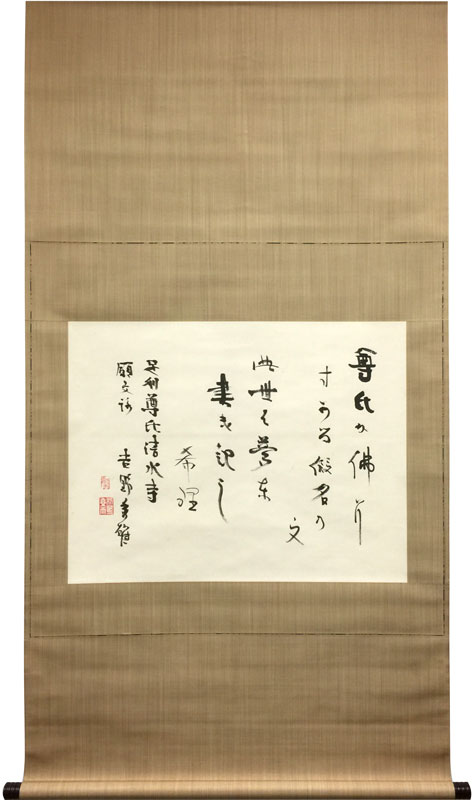 尊氏か佛尓
寸可る假名の
文
此世は夢東
書き記し
希理
足利尊氏清水寺
願文詠
吉野秀雄